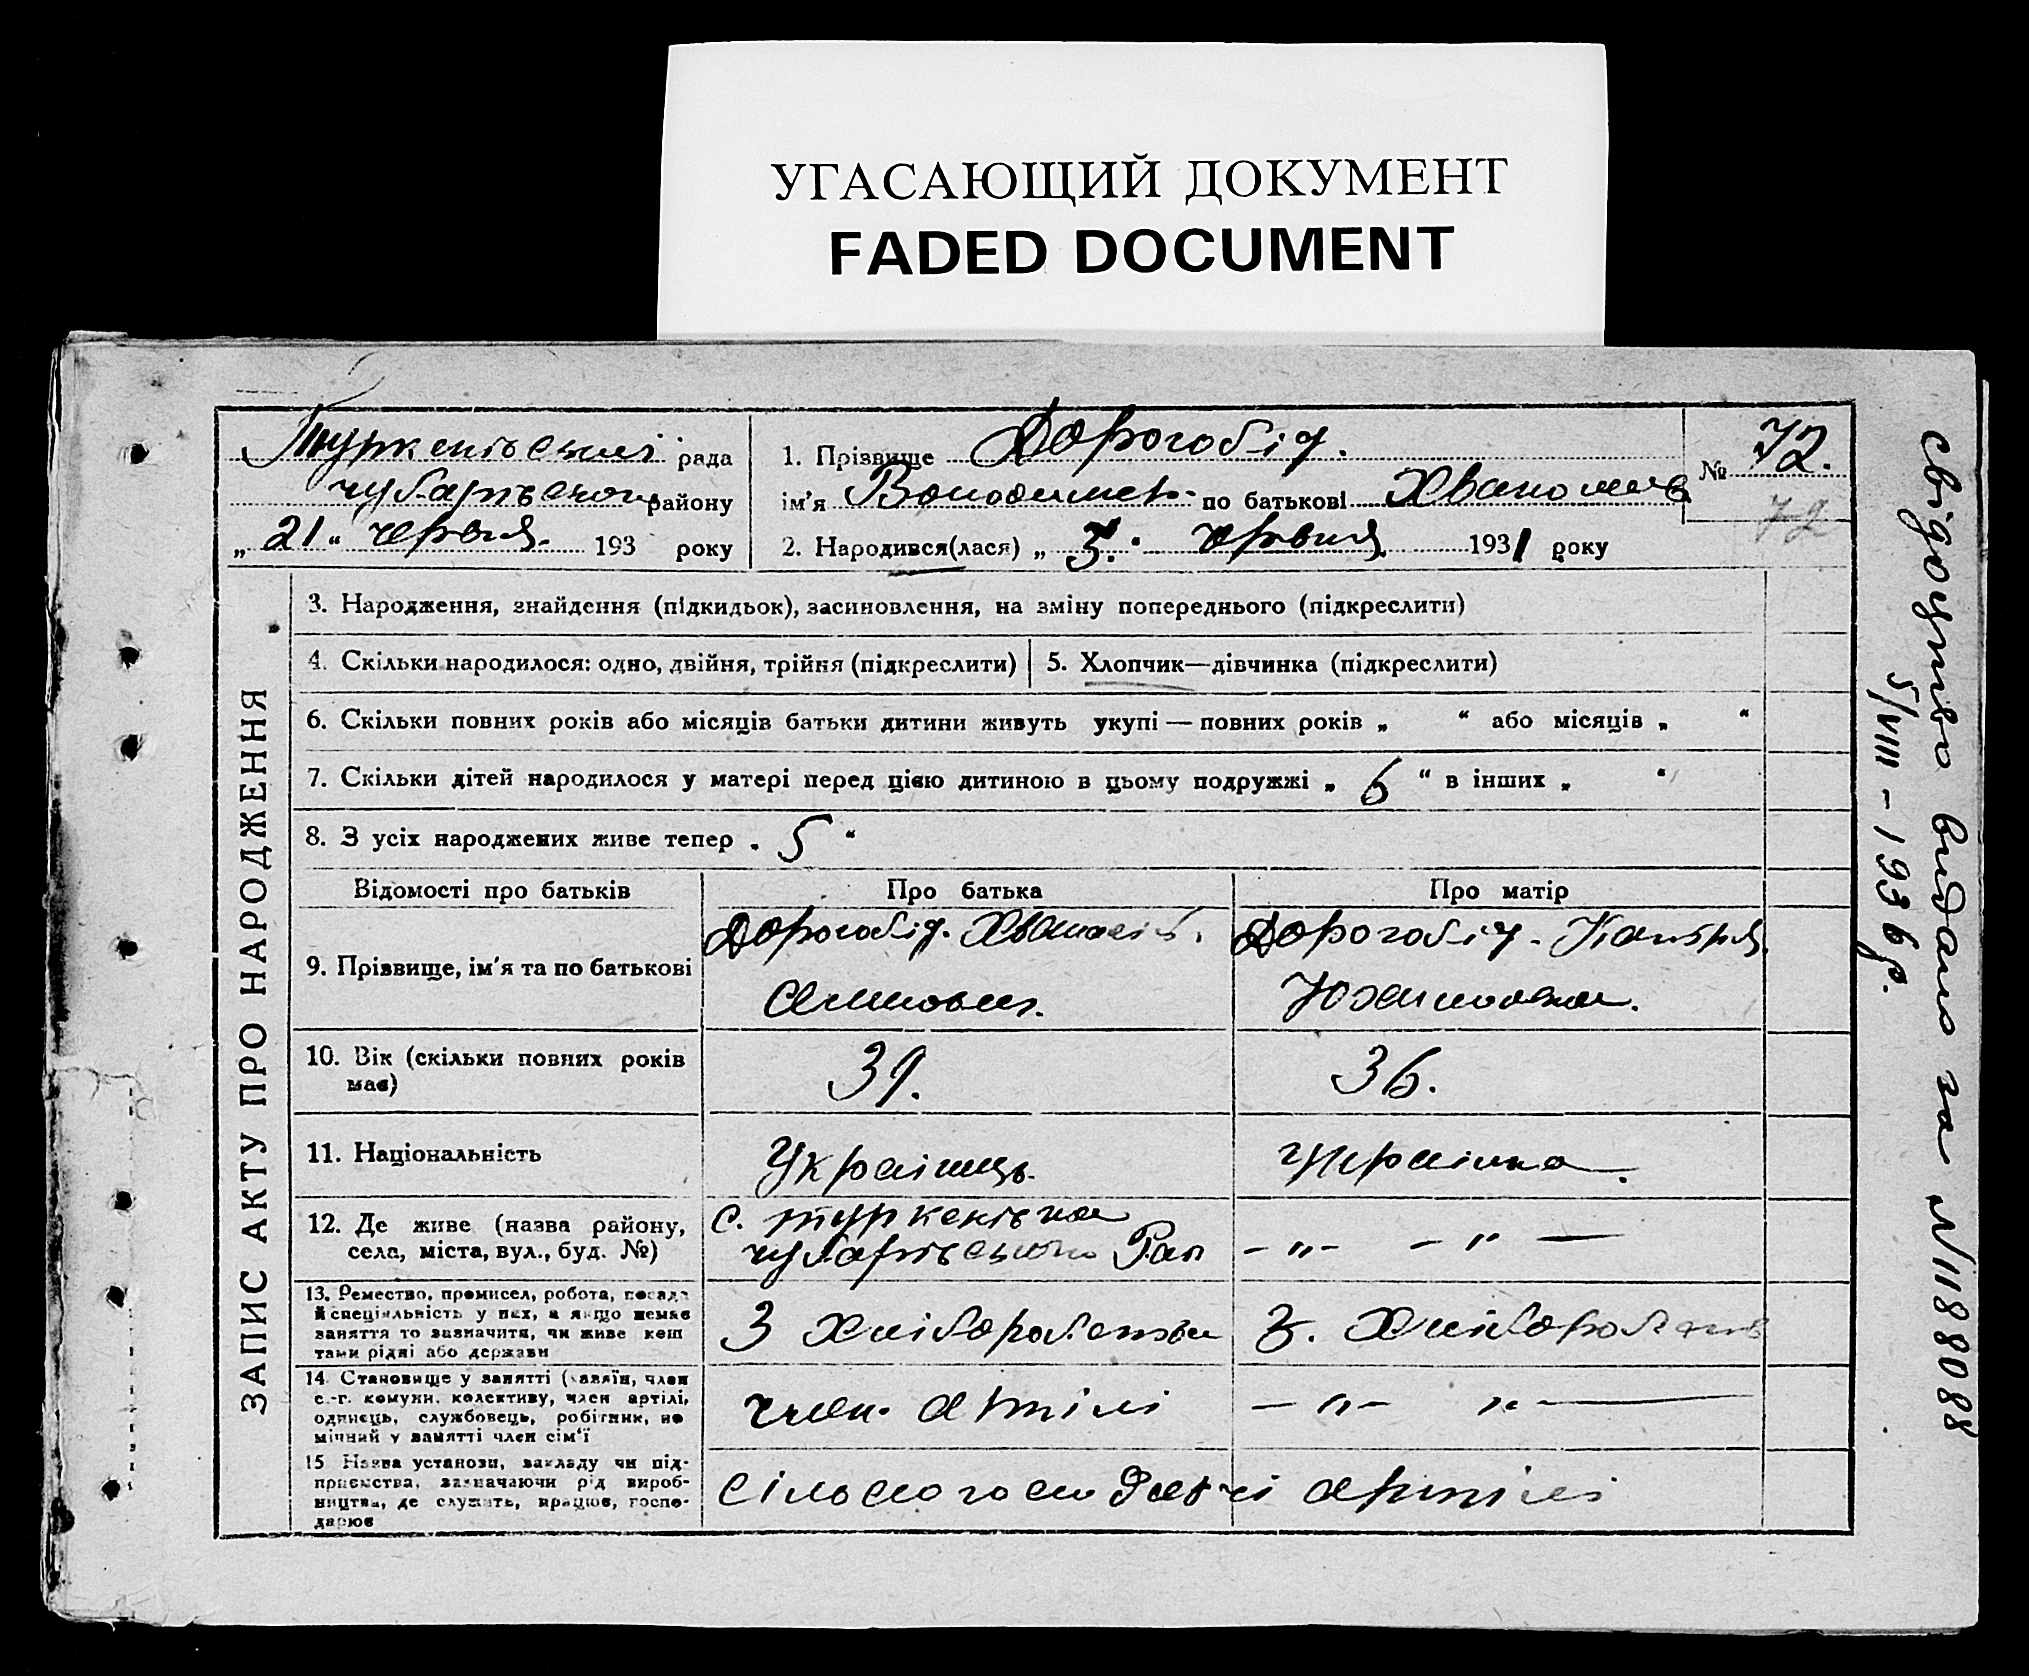 УГАСАЮЩИЙ ДОКУМЕНТ
FADED DOCUMENT
Туркенівській рада
Чубарівського району
„ 21 “ червня. 193 року
1. Прізвище Дорогобід.
ім'я Володимер по батькові
2. Народився(лася) „ 3. “ червня 1931 року
№ 72.
72
ЗАПИС АКТУ ПРО НАРОДЖЕННЯ
3. Народження, знайдення (підкидьок), засиновлення, на зміну попереднього (підкреслити)
4. Скільки народилося: одно, двійня, трійня (підкреслити)
5. Хлопчик—дівчинка (підкреслити)
6. Скільки повних років або місяців батьки дитини живуть укупі — повних років „ “ або місяців „ “
7. Скільки дітей народилося у матері перед цією дитиною в цьому подружжі „ 6 “ в інших „ “
8. З усіх народжених живе тепер „ 5 “
Відомості про батьків Про батька Про матір
9. Прізвище, ім'я та по батькові
Дорогобід.
Дорогобід
10. Вік (скільки повних років має)
39.
36.
11. Національність
Українець.
українка.
12. Де живе (назва району, села, міста, вул., буд. №)
с. Туркенівка
Чубарівського Рай
- „ - - „ —
13. Ремество, промисел, робота, посада
й спеціяльність у них, а якщо немає
заняття то зазначити, чи живе кош
тами рідні або держави
З Хліборобства
З. Хліборобств
14. Становище у занятті (хазяїн, член
с.-г. комуни, колективу, член артілі,
одинець, службовець, робітник, по
мічний у занятті член сім'ї
член артілі
- „ - „ —
15 Назва установи, закладу чи під-
приємства, зазначаючи рід вироб-
ництва, де служить, працює, госпо-
дарює
сільськогосподарчі артілі
свідоцтво видано за №1188088
5/VIII - 1936 р.